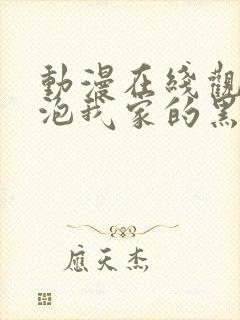 動漫在綫觀
泡我家的黑
應天杰